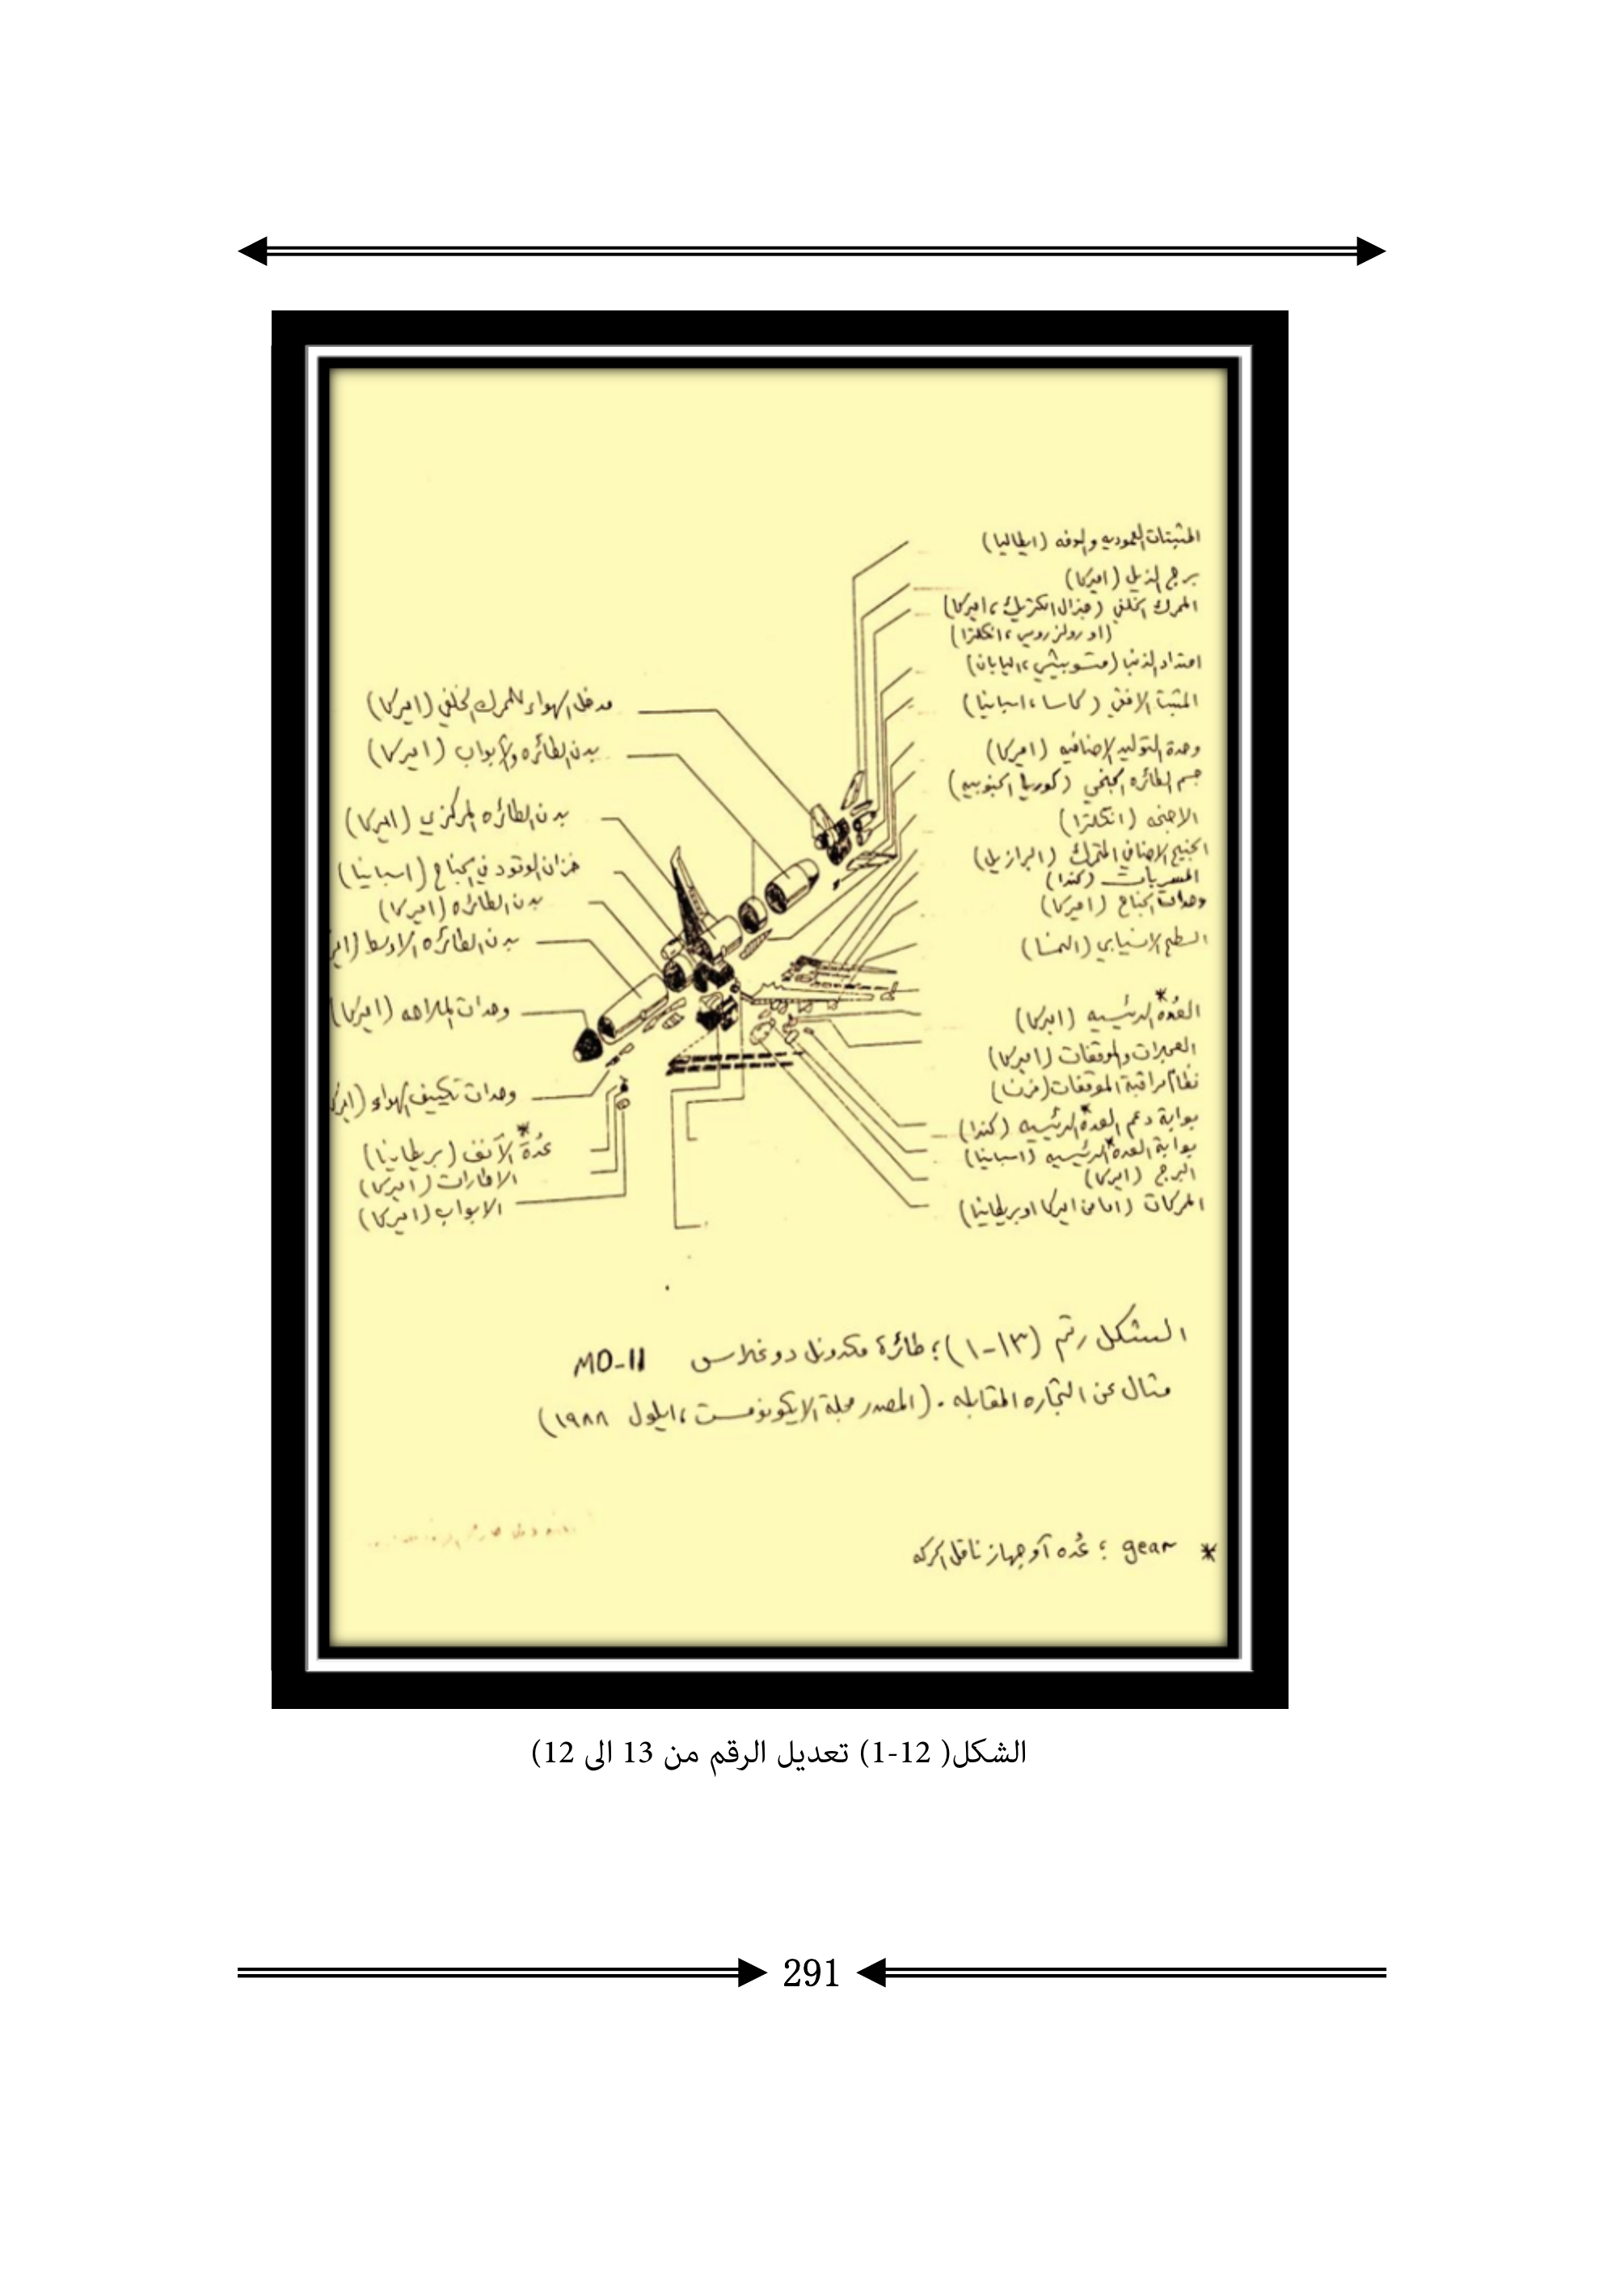 المثبتات العموديه والدفه (ايطاليا)
برج الذيل (اميركا)
المحرك الخلفي (جنرال الكتريك، اميركا)
(او رولز رويس، انكلترا)
امتداد الذنب (متسوبيشي، اليابان)
المثبت الافقي (كاسا، اسبانيا)
وحدة التوليد الاضافيه (اميركا)
جسم الطائره الجنحي (كوريا الجنوبيه)
الاجنحه (انكلترا)
الجنيح الاضافي المتحرك (البرازيل)
المسربات (كندا)
وحدات الجناح (اميركا)
السطح الانسيابي (النمسا)
العُدة* الرئيسيه (اميركا)
العجلات والموقفات (اميركا)
نظام مراقبة الموقفات (فرنسا)
بوابة دعم العدة* الرئيسيه (كندا)
بوابة العدة* الرئيسيه (اسبانيا)
البرج (اميركا)
المحركات (اما من اميركا او بريطانيا)
مدخل الهواء للمحرك الخلفي (اميركا)
بدن الطائره والأبواب (اميركا)
بدن الطائره المركزي (اميركا)
خزان الوقود في الجناح (اسبانيا)
بدن الطائره (اميركا)
بدن الطائره الاوسط (امير
وحدات الملاحه (اميركا)
وحدات تكييف الهواء (اميرك
عُدة* الأنف (بريطانيا)
الاطارات (اميركا)
الابواب (اميركا)
الشكل رقم (١٣-١): طائرة مكدونل دوغلاس MD-11
مثال عن التجاره المقابله. (المصدر مجلة الايكونومست، ايلول ١٩٨٨)
* gear : عُده أو جهاز ناقل الحركه
الشكل( 12-1) تعديل الرقم من 13 الى 12)
291